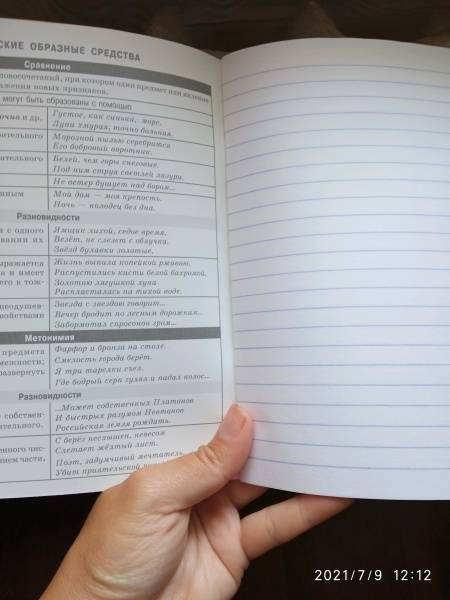 СКИЕ ОБРАЗНЫЕ СРЕДСТВА
Сравнение
ловосочетаний, при котором один предмет или явление
ажения новых признаков.
могут быть образованы с помощью
очно и др.
Густое, как синька, море.
Луна хмурая, точно больная.
рительного
Морозной пылью серебрится
Его бобровый воротник.
ательного
Белей, чем горы снеговые.
Под ним струя светлей лазури.
Не ветер бушует над бором...
нным
Мой дом — моя крепость.
Ночь — колодец без дна.
Разновидности
а с одного
вании их
Ямщик лихой, седое время,
Везёт, не слезет с облучка.
Звёзд булавки золотые.
ыражается
а и имеет
его в тож-
Жизнь выпала копейкой ржавою.
Распустились кисти белой бахромой.
Золотою лягушкой луна
Распласталась на тихой воде.
неодушев-
войствами
Звезда с звездою говорит...
Вечер бродит по лесным дорожкам...
Забормотал спросонок гром...
Метонимия
предмета
межности;
развернуть
Фарфор и бронза на столе.
Смелость города берёт.
Я три тарелки съел.
Где бодрый серп гулял и падал колос...
Разновидности
е собствен-
ательного.
...Может собственных Платонов
И быстрых разумом Невтонов
Российская земля рождать.
енного чис-
нием части,
С берёз неслышен, невесом
Слетает жёлтый лист.
Поэт, задумчивый мечтатель,
Убит приятельской
2021/7/9 12:12